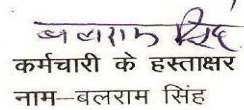 बलराम सिंह
कर्मचारी के हस्ताक्षर
नाम-बलराम सिंह